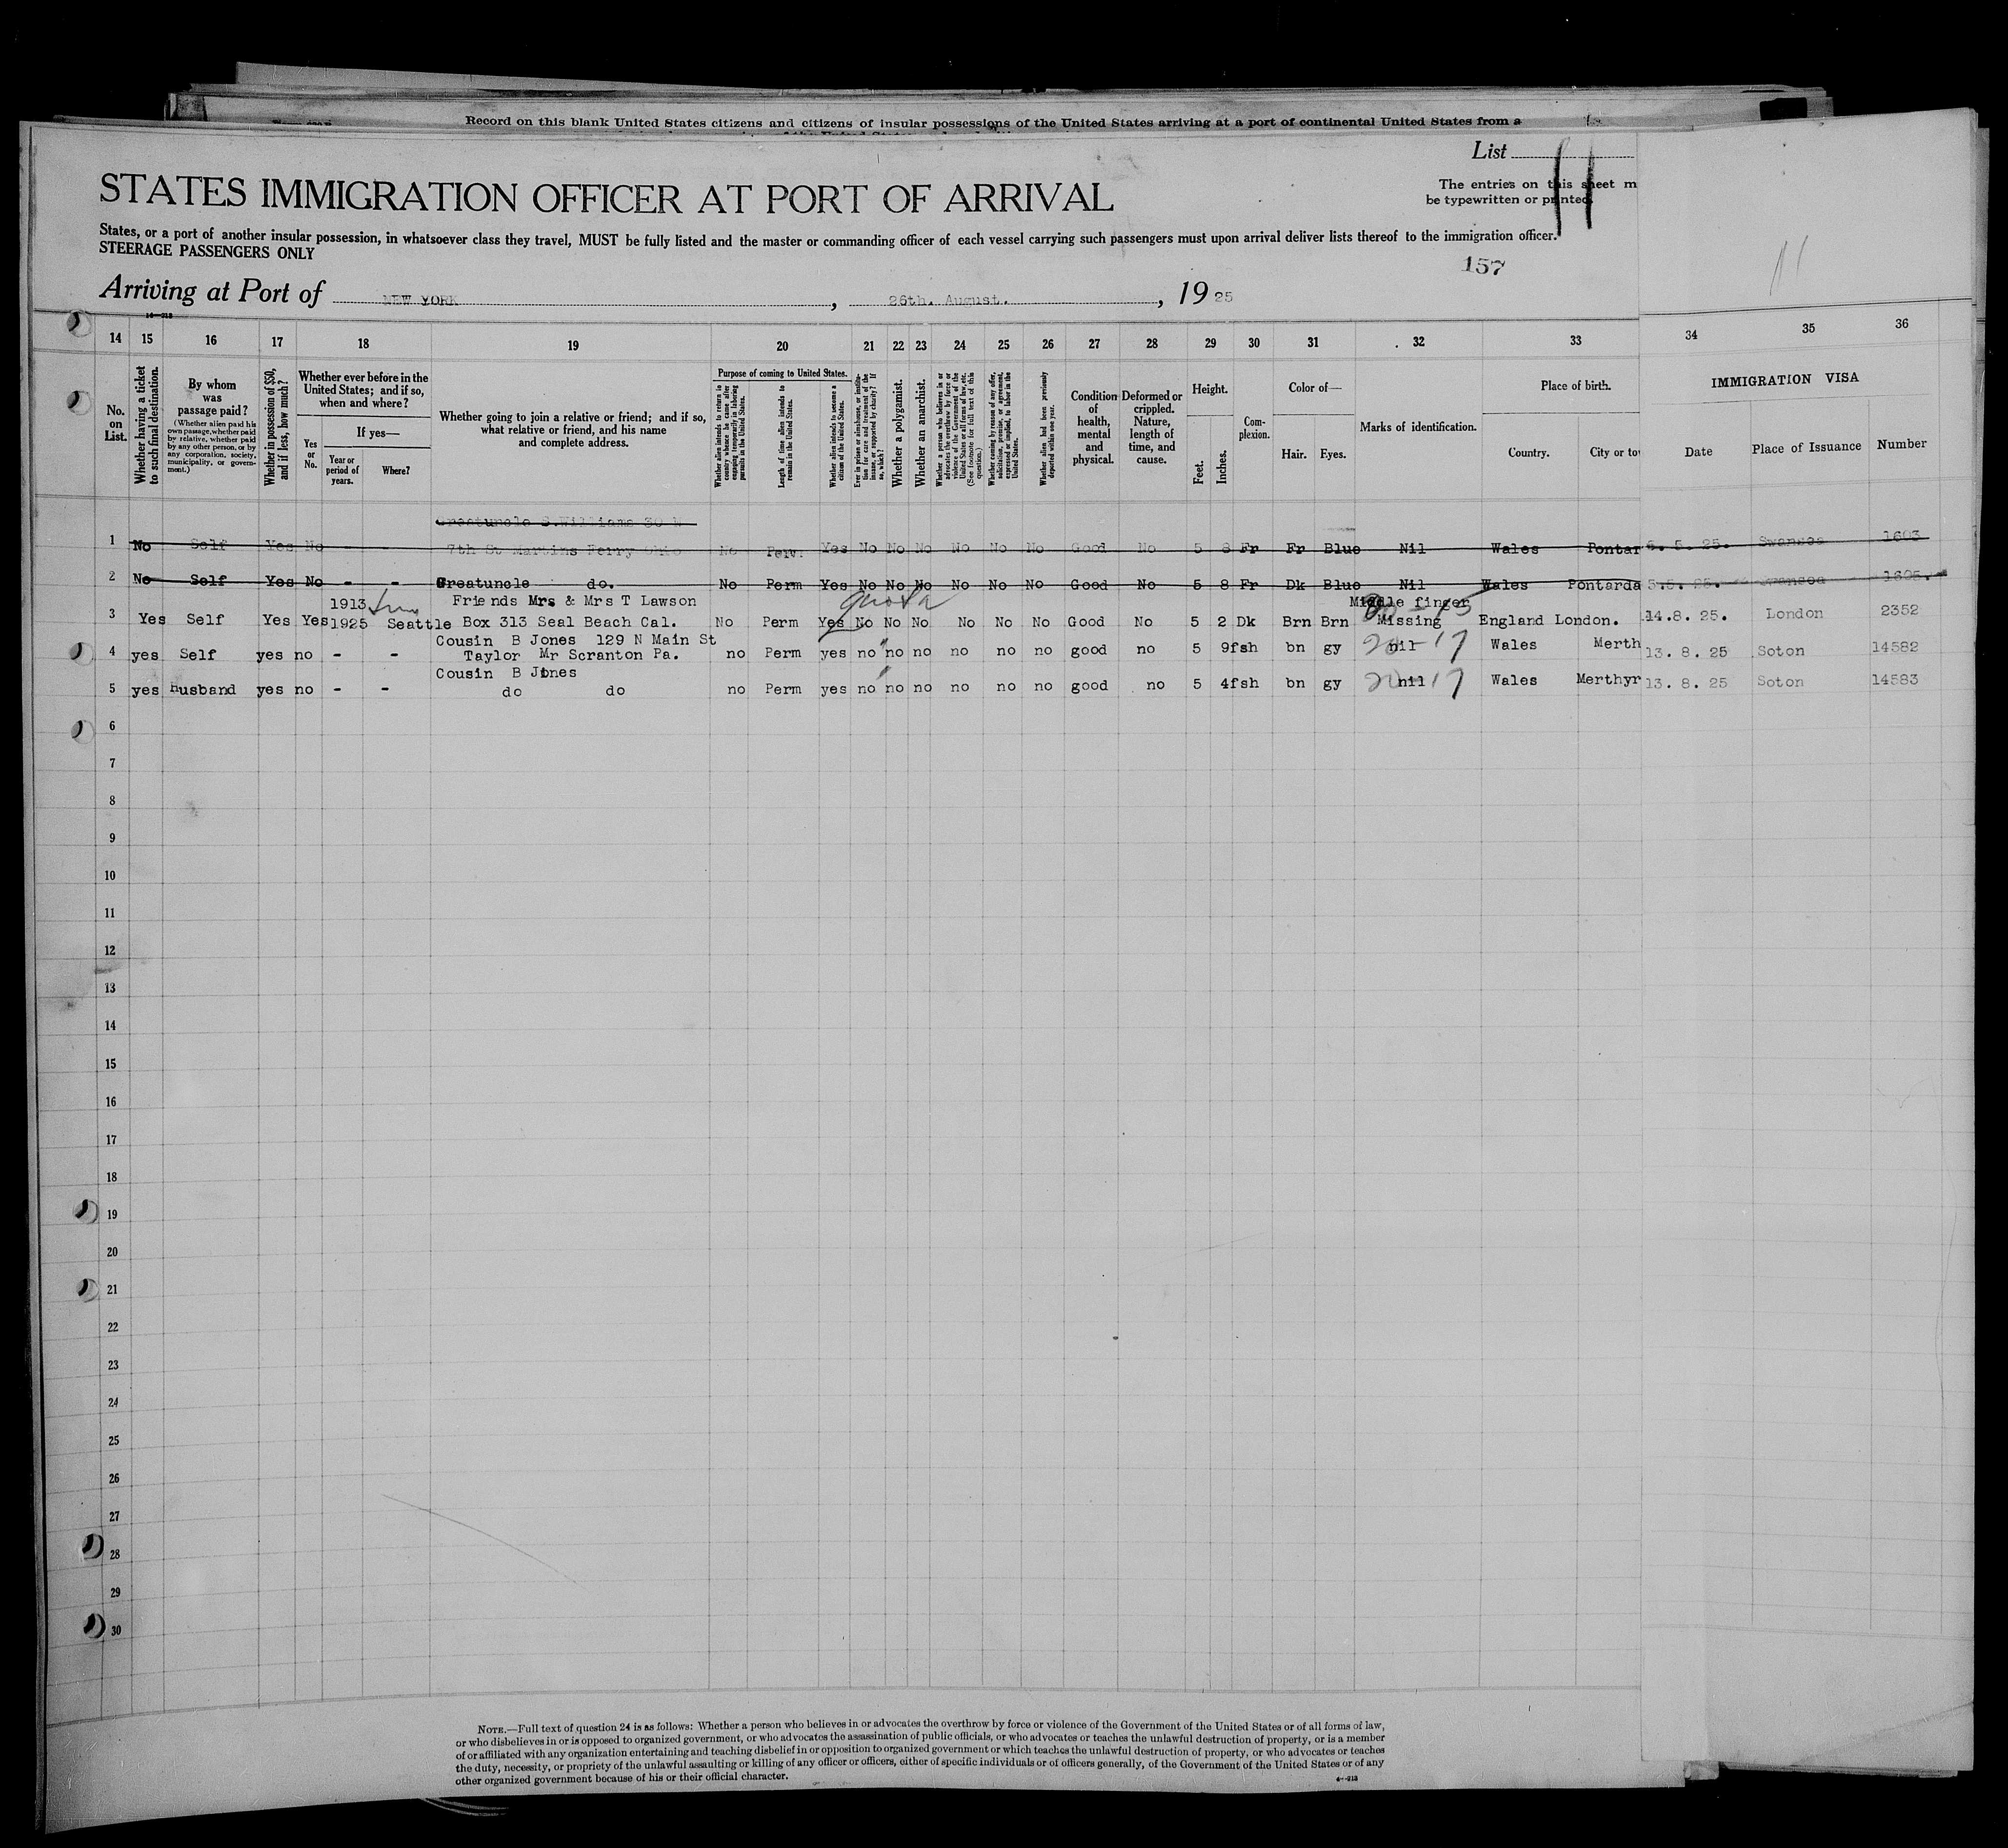 Record on this blank United States citizens and citizens of insular possessions of the United States arriving at a port of continental United States from a
List 11
STATES IMMIGRATION OFFICER AT PORT OF ARRIVAL
The entries on this sheet m
be typewritten or printed.
States, or a port of another insular possession, in whatsoever class they travel, MUST be fully listed and the master or commanding officer of each vessel carrying such passengers must upon arrival deliver lists thereof to the immigration officer.
STEERAGE PASSENGERS ONLY
157
11
Arriving at Port of NEW YORK, 26th. August., 1925
14 15 16 17 18 19 20 21 22 23 24 25 26 27 28 29 30 31 32 33 34 35 36
No. on List.
Whether having a ticket to such final destination.
By whom was passage paid?
(Whether alien paid his own passage, whether paid by relative, whether paid by any other person, or by any corporation, society, municipality, or government.)
Whether in possession of $50, and if less, how much?
Whether ever before in the United States; and if so, when and where?
Yes or No.
If yes—
Year or period of years.
Where?
Whether going to join a relative or friend; and if so, what relative or friend, and his name and complete address.
Purpose of coming to United States.
Whether alien intends to return to country whence he came after engaging temporarily in laboring pursuits in the United States.
Length of time alien intends to remain in the United States.
Whether alien intends to become a citizen of the United States.
Ever in prison or almshouse, or institution for care and treatment of the insane, or supported by charity? If so, which?
Whether a polygamist.
Whether an anarchist.
Whether a person who believes in or advocates the overthrow by force or violence of the Government of the United States or all forms of law, etc. (See footnote for full text of this question.)
Whether coming by reason of any offer, solicitation, promise, or agreement, expressed or implied, to labor in the United States.
Whether alien had been previously deported within one year.
Condition of health, mental and physical.
Deformed or crippled. Nature, length of time, and cause.
Height.
Feet. Inches.
Complexion.
Color of—
Hair. Eyes.
Marks of identification.
Place of birth.
Country. City or tow
IMMIGRATION VISA
Date Place of Issuance Number
Greatuncle S.Williams 30 N
1 No Self Yes No - - 7th St Martins Ferry Ohio No Perm. Yes No No No No No No Good No 5 8 Fr Fr Blue Nil Wales Pontar 5. 5. 25. Swansea 1603
2 No Self Yes No - - Greatuncle do. No Perm Yes No No No No No No Good No 5 8 Fr Dk Blue Nil Wales Pontarda 5.5. 25. Swansea 1605.
1913 Friends Mrs & Mrs T Lawson quota Middle finger
3 Yes Self Yes Yes 1925 Seattle Box 313 Seal Beach Cal. No Perm Yes No No No No No No Good No 5 2 Dk Brn Brn Missing England London. 14.8. 25. London 2352
Cousin B Jones 129 N Main St
4 yes Self yes no - - Taylor Mr Scranton Pa. no Perm yes no no no no no no good no 5 9 fsh bn gy nil 20-17 Wales Merth 13. 8. 25 Soton 14582
Cousin B Jones
5 yes husband yes no - - do do no Perm yes no no no no no no good no 5 4 fsh bn gy nil 20-17 Wales Merthyr 13. 8. 25 Soton 14583
6
7
8
9
10
11
12
13
14
15
16
17
18
19
20
21
22
23
24
25
26
27
28
29
30
NOTE.—Full text of question 24 is as follows: Whether a person who believes in or advocates the overthrow by force or violence of the Government of the United States or of all forms of law,
or who disbelieves in or is opposed to organized government, or who advocates the assassination of public officials, or who advocates or teaches the unlawful destruction of property, or is a member
of or affiliated with any organization entertaining and teaching disbelief in or opposition to organized government or which teaches the unlawful destruction of property, or who advocates or teaches
the duty, necessity, or propriety of the unlawful assaulting or killing of any officer or officers, either of specific individuals or of officers generally, of the Government of the United States or of any
other organized government because of his or their official character.